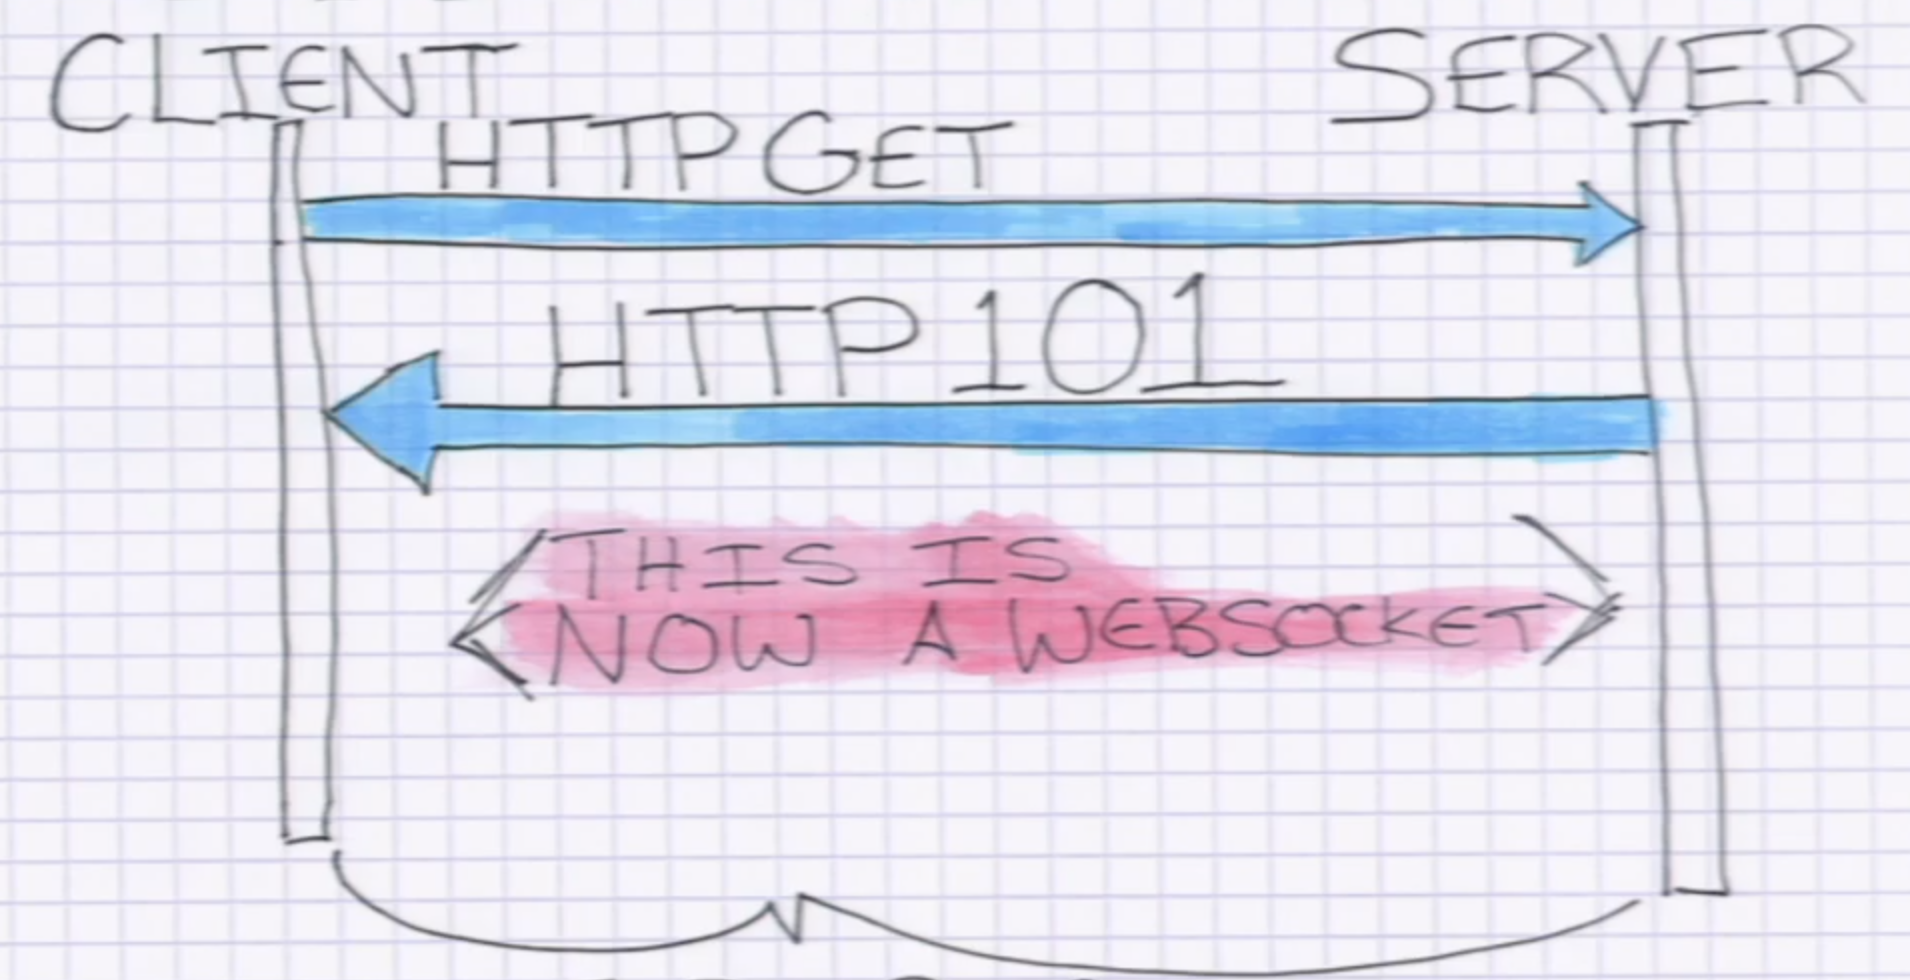 CLIENT SERVER
HTTP GET
HTTP 101
THIS IS
NOW A WEBSOCKET